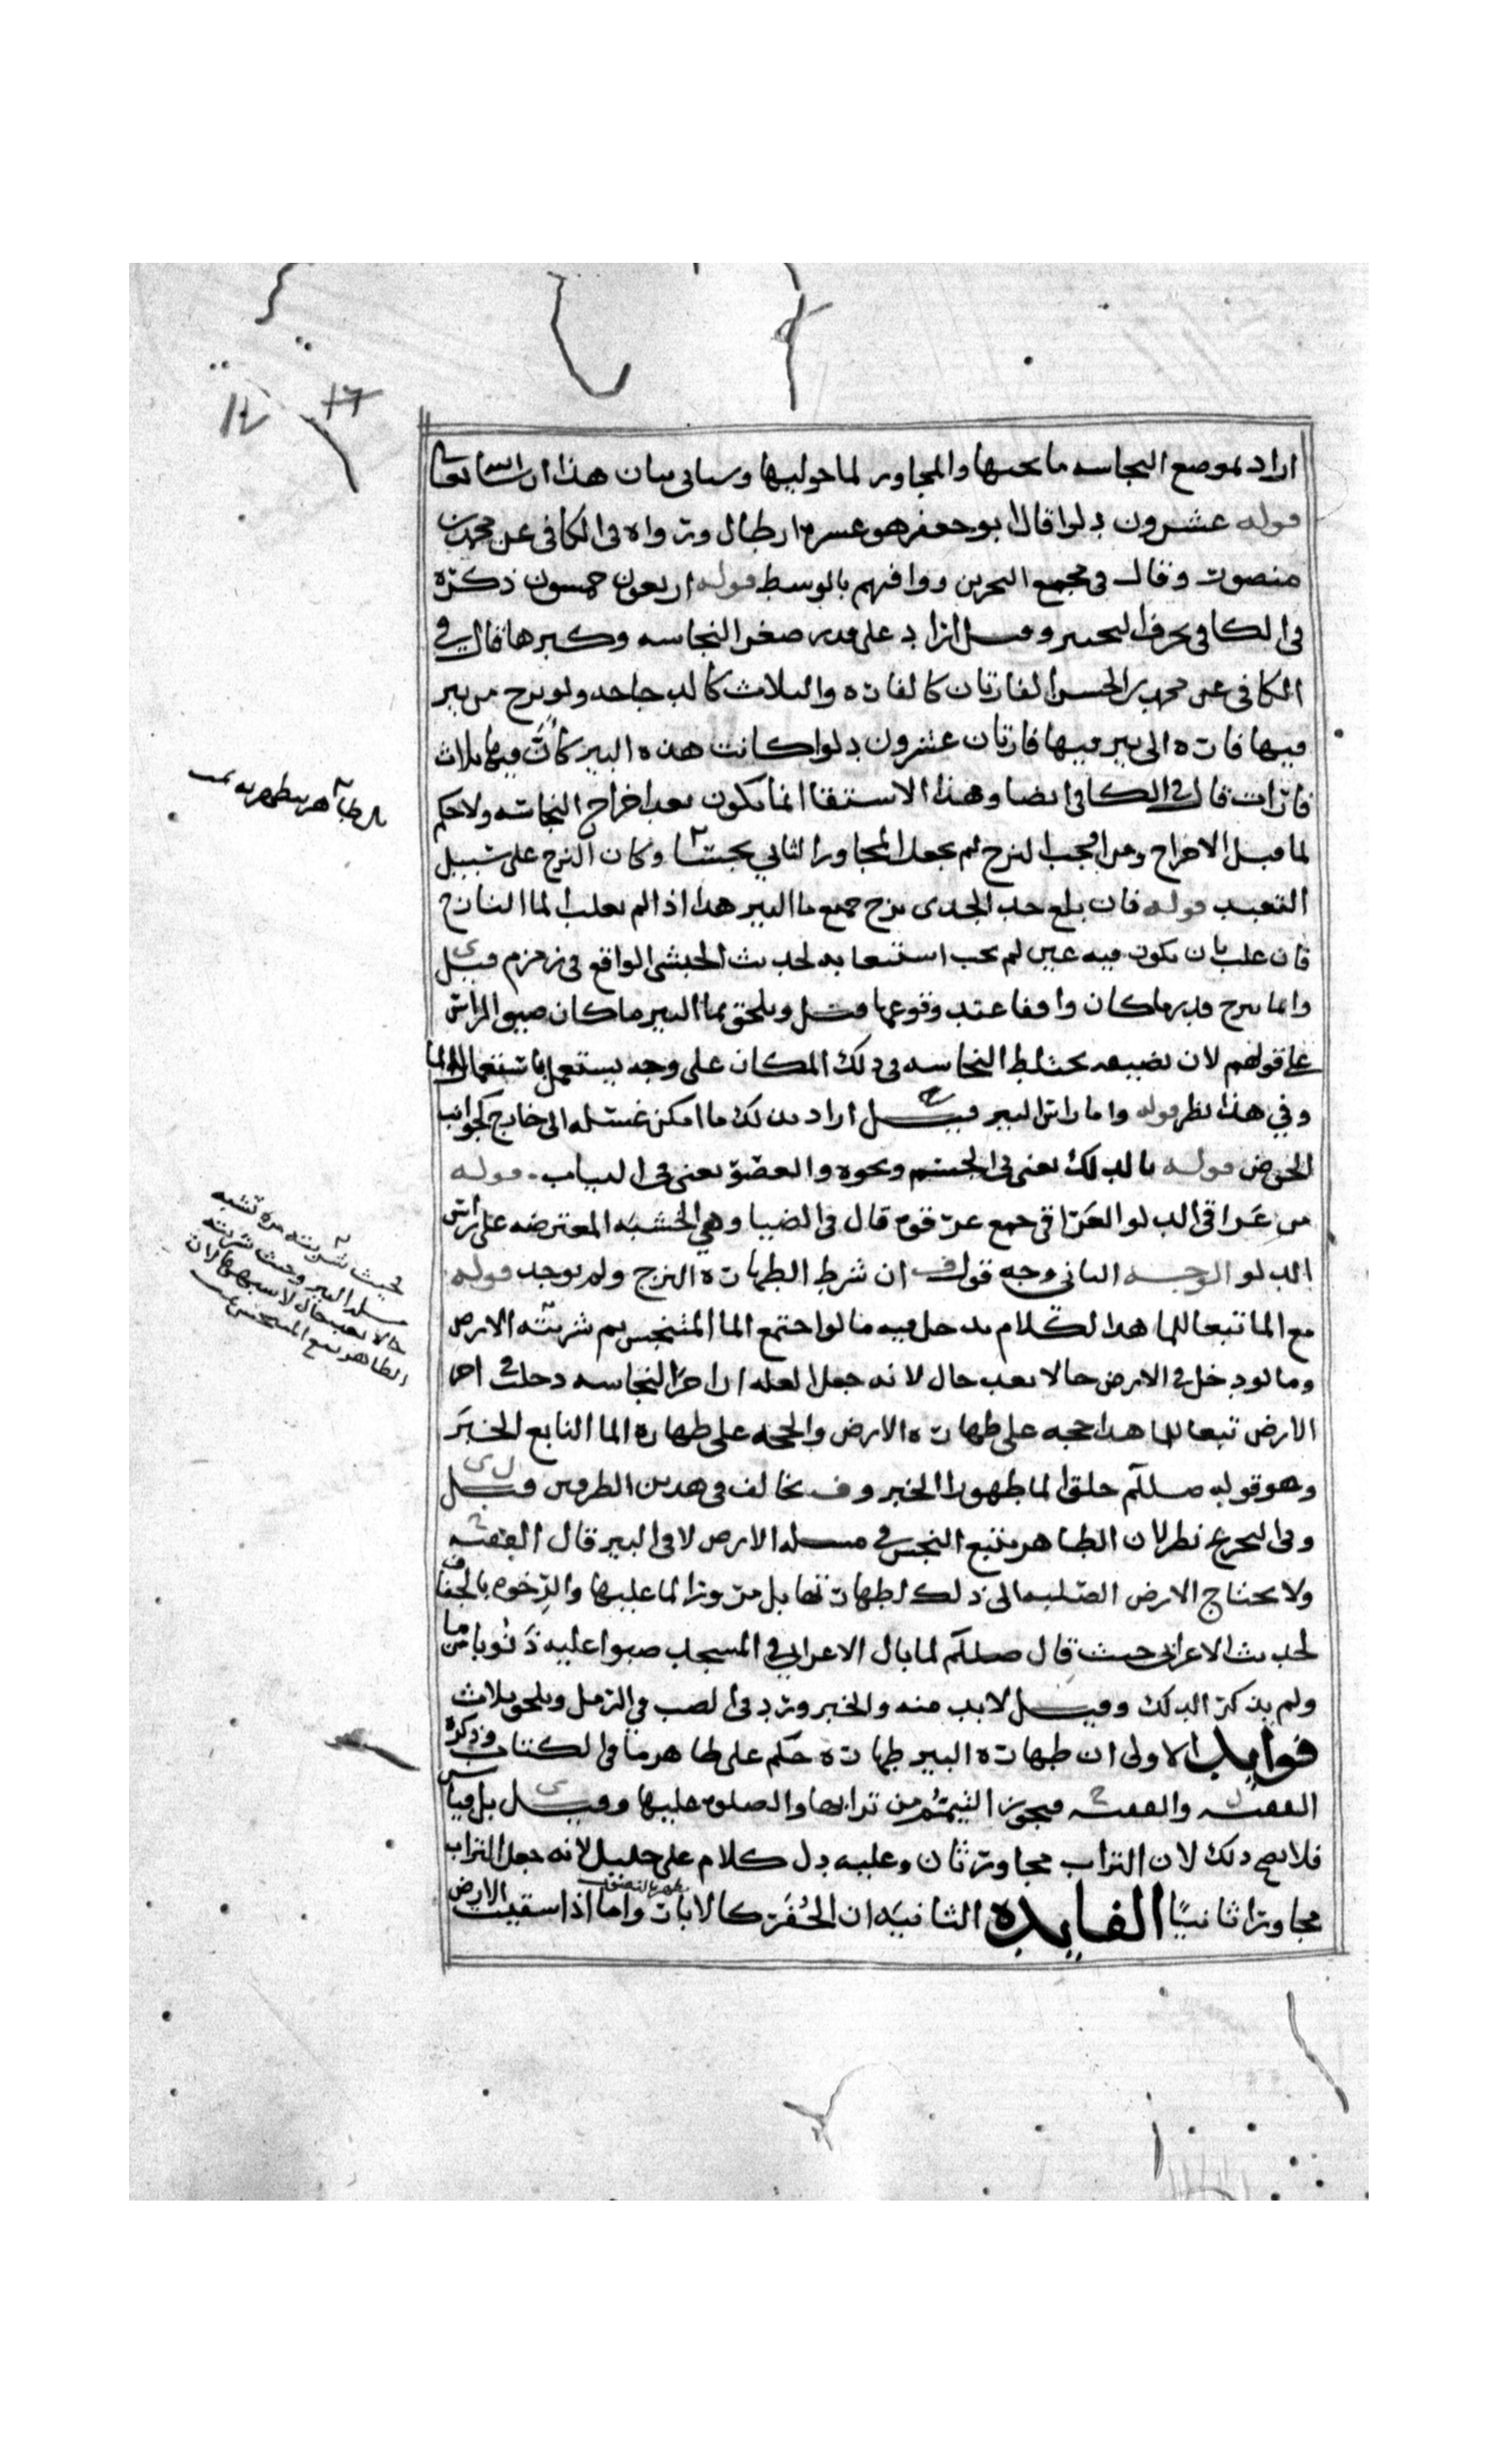 اراد بموضع النجاسه ما تحتها والمجاور لما حوليها وسياتي بيان هذا ان شا الله تعالى
قوله عشرون دلوا قال ابو جعفر هو عسره ارطال ورواه في الكافي عن محمد بن
منصور وقال في مجمع البحرين ووافهم بالوسط قوله اربعون خمسون ذكره
في الكافي بحرف التخيير وقيل اراد على قدر صغر النجاسه وكبرها قال في
الكافي عن محمد بن الحسن الفارتان كالفاره والثلاث كالدجاجه ولو نزح من بير
فيها فاره الى بير فيها فارتان عشرون دلوا كانت هذه البير كان فيها ثلاث
فارات قال في الكافي ايضا وهذا الاستقا انما يكون بعد اخراج النجاسه ولا حكم
لما قبل الاخراج ومن اوجب النزح لم يجعل المجاور الثاني نجسا وكان النزح على سبيل
التعبد قوله فان بلغ حد الجدي نزح جميع ما البير هذا اذا لم يغلب الما النازح
فان غلب بان يكون فيه عين لم يجب استيعابه لحديث الحبشي الواقع في زمزم قيل
وانما ينزح قدر ما كان واقفا عند وقوعها قيل ويلحق بما البير ما كان صبوا الراس
على قولهم لان نضيبه يختلط النجاسه في ذلك المكان على وجه يستعمل باستعمال الما
وفي هذا نظر قوله واما راس البير قيل اراد بذلك ما امكن غسله الى خارج كجوانب
الحوض قوله بالدلك يعني في الجسم ونحوه والعصر يعني في الثياب قوله
من عراقي الدلو العراقي جمع عرقوه قال في الضيا وهي الخشبه المعترضه على راس
الدلو الوجه الثاني وجه قول ف ان شرط الطهاره النزح ولم يوجد قوله
مع الما تبعا للما هذا الكلام يدخل فيه ما لو اجتمع الما المتنجس ثم شربته الارض
وما لو دخل في الارض حالا بعد حال لانه جعل العله ان اجزا النجاسه دخلت اجزا
الارض تبعا للما هذا حجه على طهاره الارض والحجه على طهاره الما النابع الخبر
وهو قوله صللم خلق الما طهورا الخبر وف يخالف في هذين الطرفين قيل
وفي التخريج نظر لان الطاهر يتبع النجس في مسله الارض لا في البير قال الفقيه
ولا يحتاج الارض الصلبه الى ذلك لطهارتها بل مرور الما عليها والرخوه بالجفاف
لحديث الاعرابي حيث قال صللم لما بال الاعرابي في المسجد صبوا عليه ذنوبا من ما
ولم يذكر الدلك وقيل لا بد منه والخبر ورد في الصب في الرمل ويلحق ثلاث
فوايد الاولى ان طهاره البير طهاره حكم على ظاهر ما في الكتاب وذكره
الفقيه والفقيه فيجوز التيمم من ترابها والصلوه عليها وقيل بل قياس
فلا يصح ذلك لان التراب مجاور ثان وعليه دل كلام علي خليل لانه جعل التراب
مجاورا ثانيا الفايده الثانيه ان الحفر كالابار واما اذا سقيت الارض